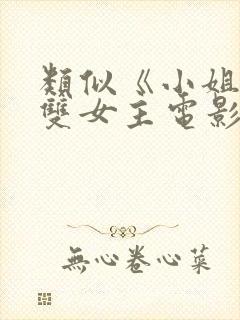 類似《小姐
雙女主電影
無心卷心菜